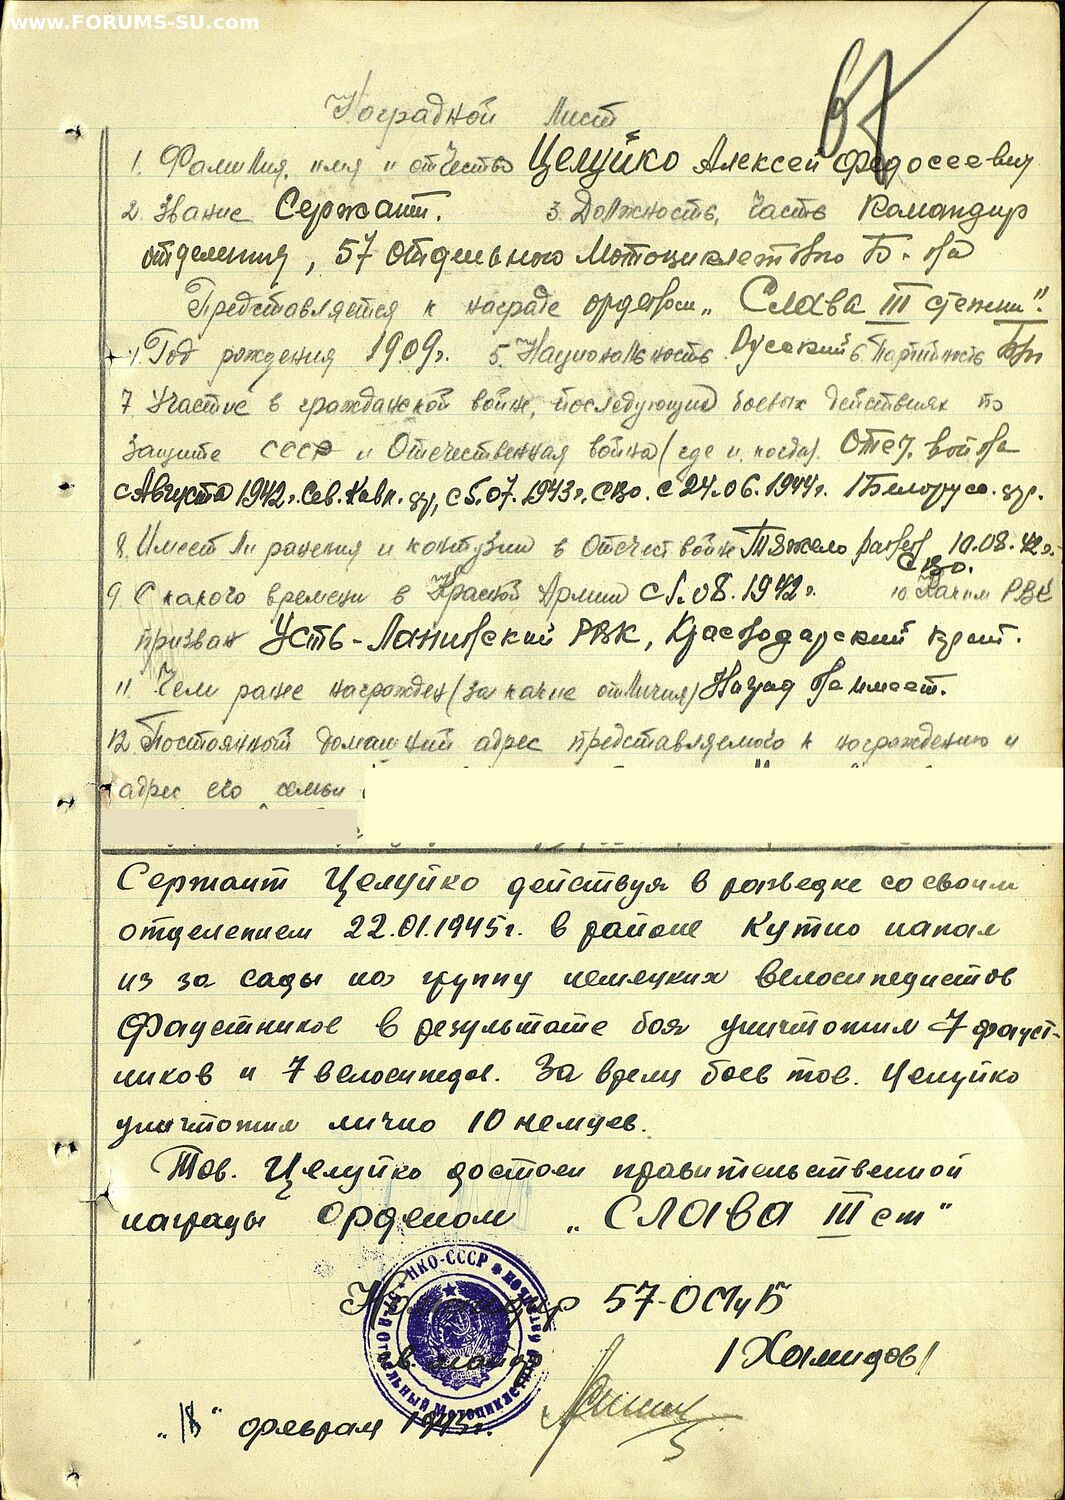 www.FORUMS-SU.com
67
Наградной Лист
1. Фамилия, имя и отчество Целуйко Алексей Федосеевич
2. Звание Сержант. 3. Должность, часть Командир
отделения, 57 Отдельного Мотоциклетного Б-на
Представляется к награде орденом „Слава III степени".
4. Год рождения 1909г. 5. Национальность Русский 6. Партийность Б/п
7 Участие в гражданской войне, последующих боевых действиях по
защите СССР и Отечественная война (где и когда). Отеч. война
с Августа 1942г. Сев. Кавк. фр, с 5.07.1943г. СВО. с 24.06.1944г. 1 Белорусс. фр.
8. Имеет ли ранения и контузии в Отечест войне Тяжело ранен 10.08.42г.
СКВО.
9. С какого времени в Красной Армии с 1.08.1942г. 10 Каким РВК
призван Усть-Лабинский РВК, Краснодарский край.
11. Чем ранее награжден (за какие отличия) Наград не имеет.
12. Постоянный домашний адрес представляемого к награждению и
адрес его семьи
Сержант Целуйко действуя в разведке со своим
отделением 22.01.1945г. в районе Кутно напал
из за сады на группу немецких велосипедистов
фаустников в результате боя уничтожил 7 фауст-
ников и 7 велосипедов. За время боев тов. Целуйко
уничтожил лично 10 немцев.
Тов. Целуйко достоен правительственной
награды орденом „СЛАВА III ст"
Командир 57-ОМцБ
гв. майор /Хамидов/
НКО-СССР 57-й Отдельный Мотоциклетный
„18" февраля 1945г.